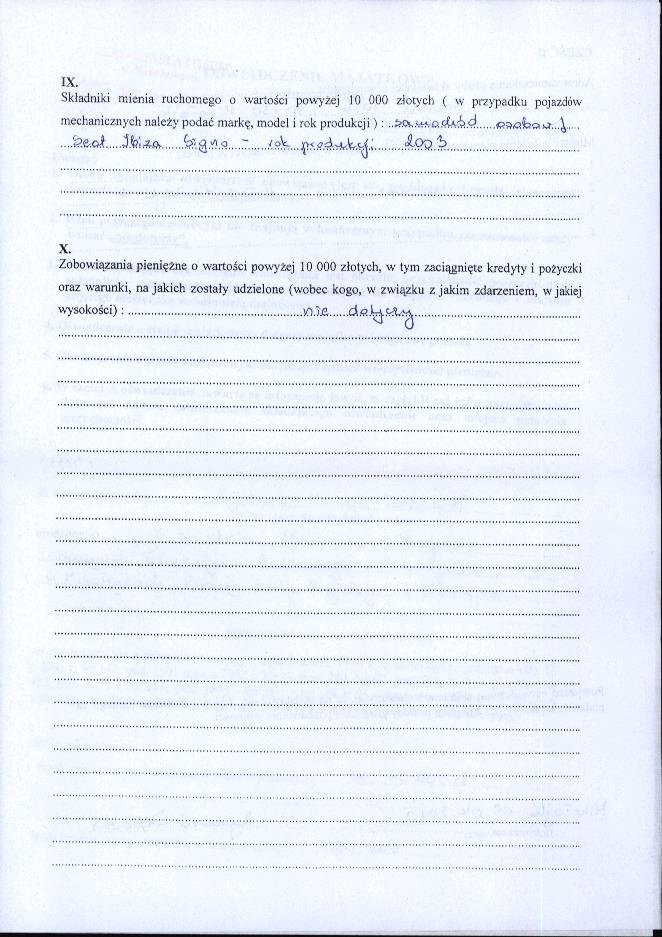 IX.
Składniki mienia ruchomego o wartości powyżej 10 000 złotych ( w przypadku pojazdów
mechanicznych należy podać markę, model i rok produkcji ) : samochód osobowy
Seat Ibiza Signo - rok produkcji 2003
X.
Zobowiązania pieniężne o wartości powyżej 10 000 złotych, w tym zaciągnięte kredyty i pożyczki
oraz warunki, na jakich zostały udzielone (wobec kogo, w związku z jakim zdarzeniem, w jakiej
wysokości) : nie dotyczy